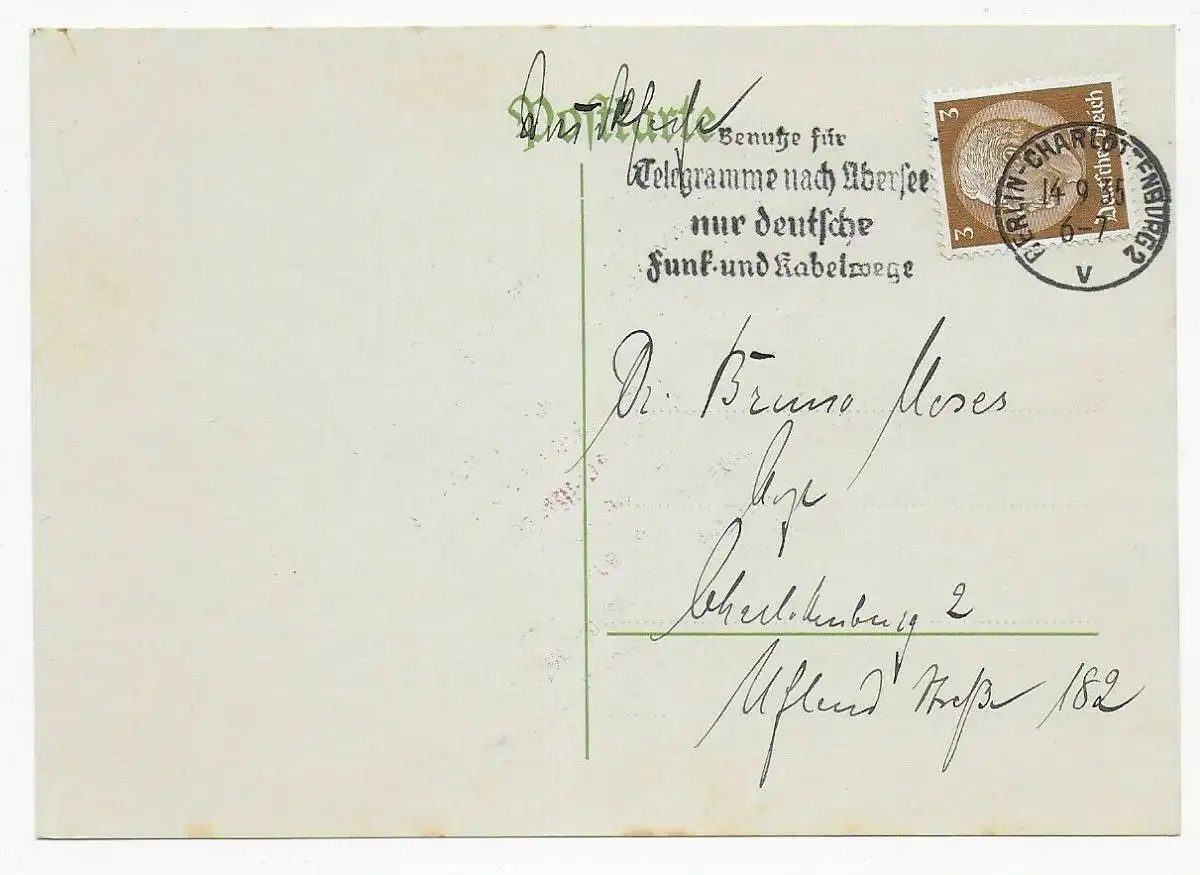 Postkarte
Drucksache
Benutze für
Telegramme nach Übersee
nur deutsche
Funk- und Kabelwege
3
3
Deutsches Reich
BERLIN-CHARLOTTENBURG 2
14.9.35
6-7
V
Dr. Bruno Moses
Charlottenburg 2
Uhland Straße 182